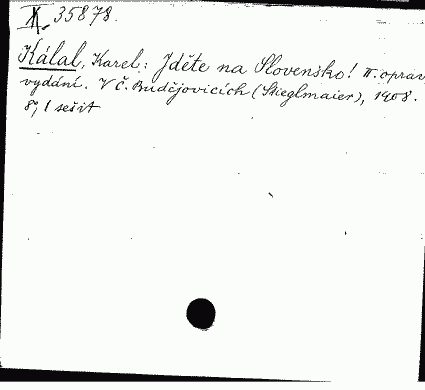 35878.
Kálal, Karel: Jděte na Slovensko! II. oprav.
vydání. V Č. Budějovicích (Stieglmaier), 1908.
8°, 1 sešit